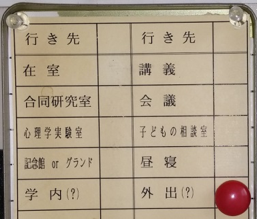 行き先 行き先
在室 講義
合同研究室 会議
心理学実験室 子どもの相談室
記念館 or グランド 昼寝
学内(?) 外出(?)